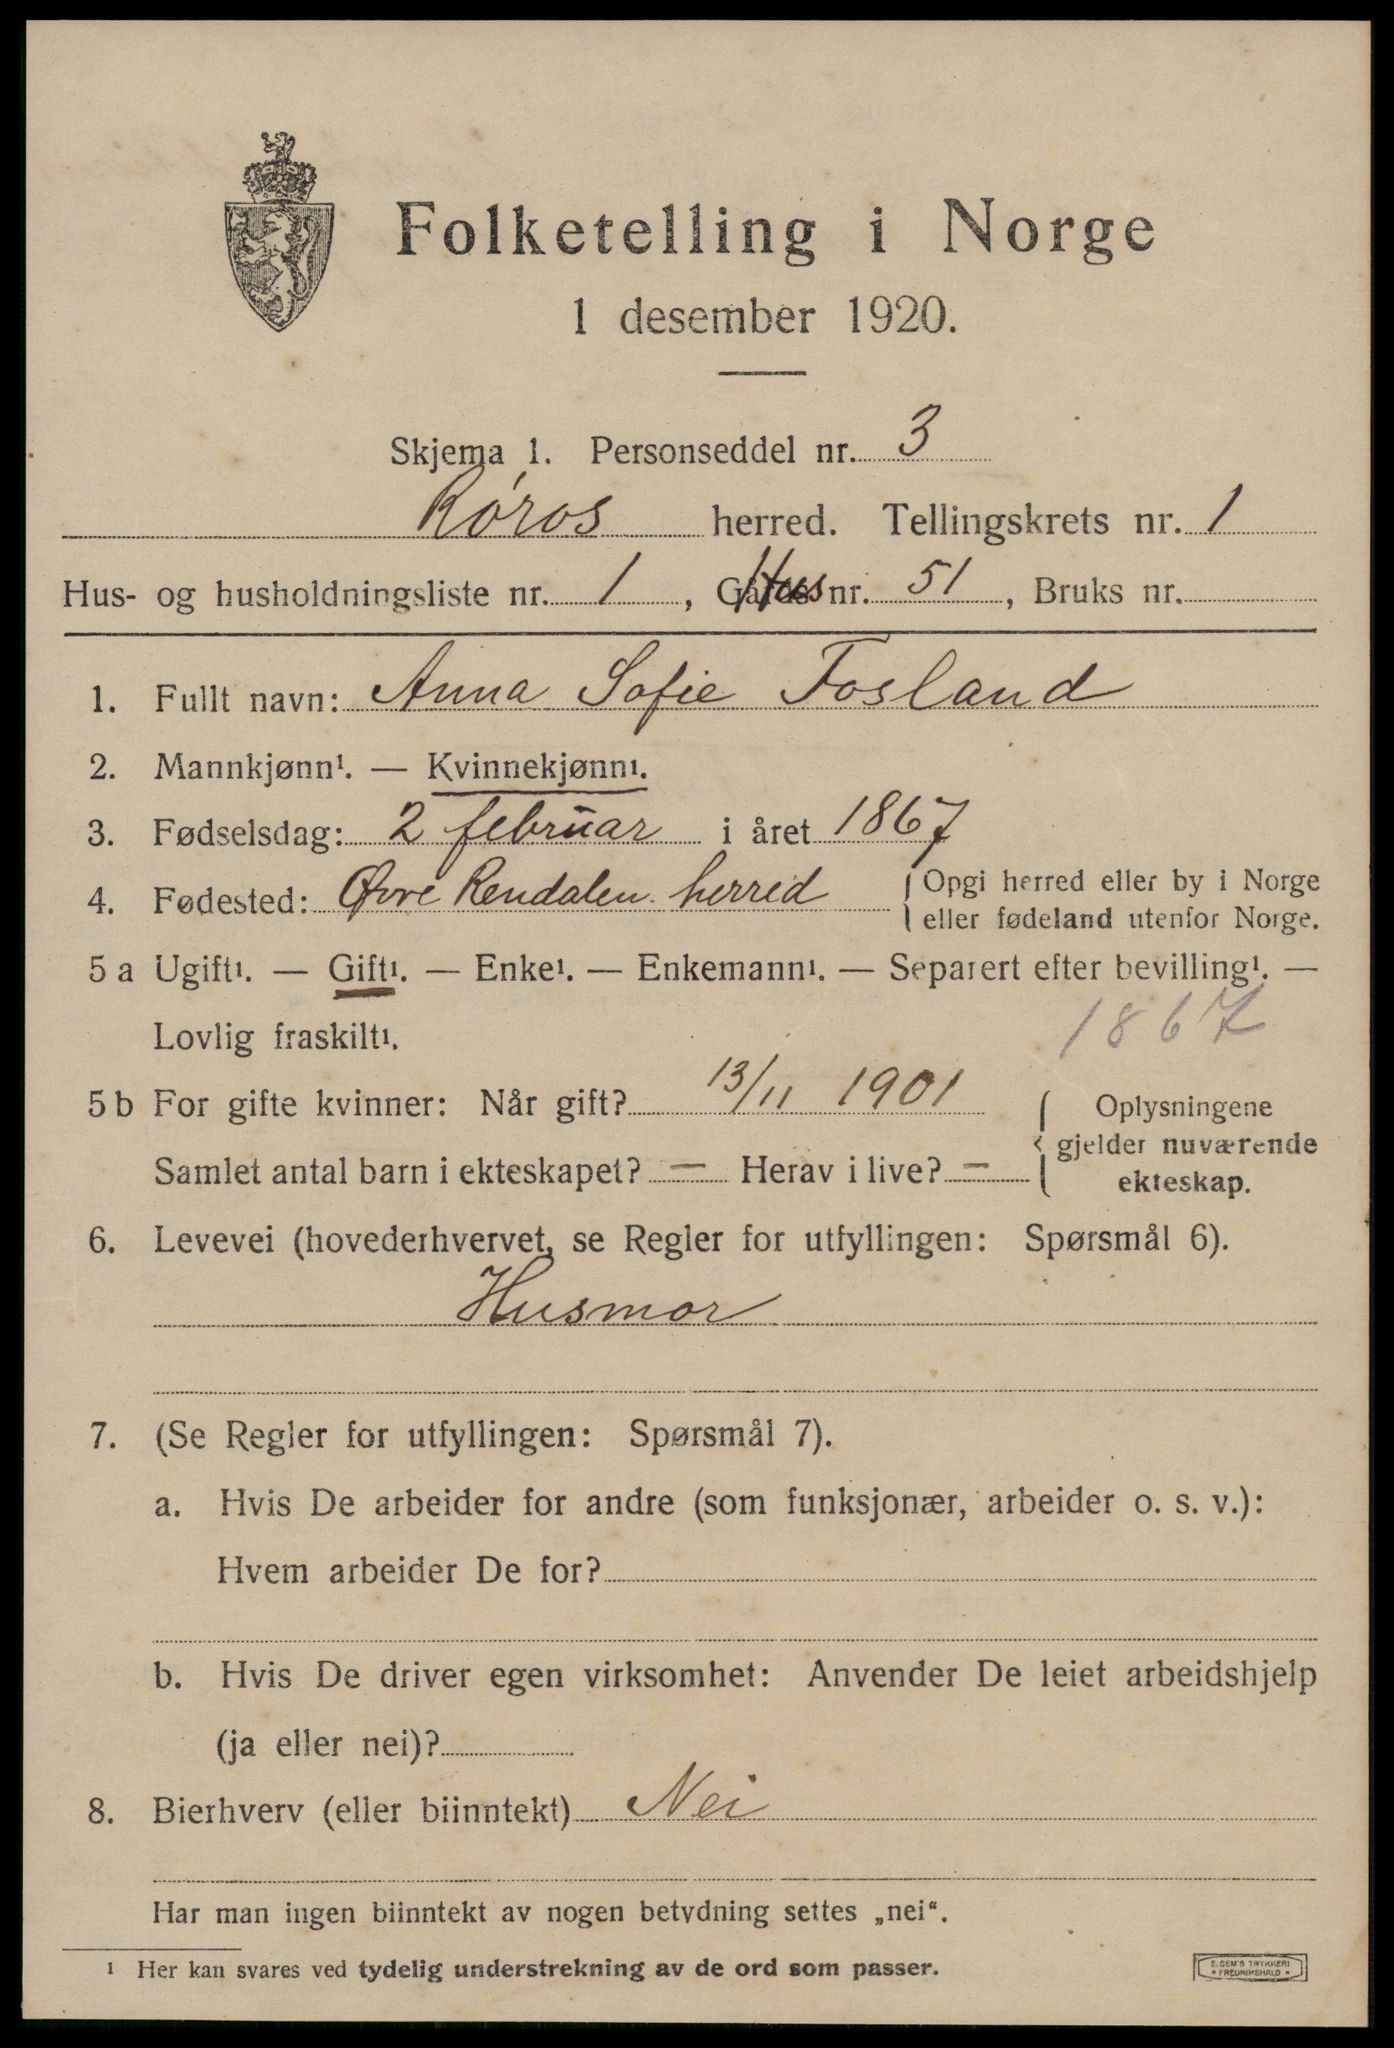 Folketelling i Norge
1 desember 1920.
Skjema 1. Personseddel nr. 3
Røros herred. Tellingskrets nr. 1
Hus- og husholdningsliste nr. 1, Gårds Hus nr. 51, Bruks nr.
1. Fullt navn: Anna Sofie Fosland
2. Mannkjønn¹. — Kvinnekjønn¹.
3. Fødselsdag: 2 februar i året 1867
4. Fødested: Øvre Rendalen herred Opgi herred eller by i Norge
eller fødeland utenfor Norge.
5 a Ugift¹. — Gift¹. — Enke¹. — Enkemann¹. — Separert efter bevilling¹. —
Lovlig fraskilt¹. 1867
5 b For gifte kvinner: Når gift? 13/11 1901 Oplysningene
gjelder nuværende
Samlet antal barn i ekteskapet? — Herav i live? — ekteskap.
6. Levevei (hovederhvervet, se Regler for utfyllingen: Spørsmål 6).
Husmor
7. (Se Regler for utfyllingen: Spørsmål 7).
a. Hvis De arbeider for andre (som funksjonær, arbeider o. s. v.):
Hvem arbeider De for?
b. Hvis De driver egen virksomhet: Anvender De leiet arbeidshjelp
(ja eller nei)?
8. Bierhverv (eller biinntekt) Nei
Har man ingen biinntekt av nogen betydning settes „nei“.
¹ Her kan svares ved tydelig understrekning av de ord som passer.
E. SEM'S TRYKKERI
• FREDRIKSHALD •